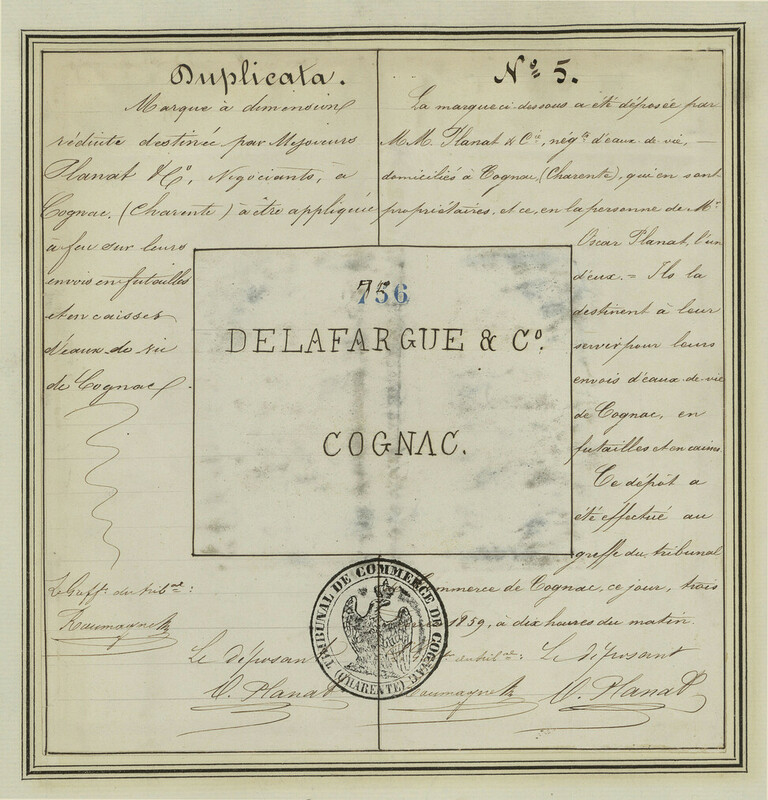 Duplicata.
Marque à dimension
réduite destinée par Messieurs
Planat & Cº, Négociants, à
Cognac, (Charente) à être appliquée
à feu sur leurs
envois en futailles
et en caisses
d'eaux de vie
de Cognac.
Le Greffr. du tribal:
Le déposant
O. Planat
Nº 5.
La marque ci dessous a été déposée par
M.M. Planat & Cie, négts d'eaux de vie,
domiciliés à Cognac, (Charente), qui en sont
propriétaires, et ce, en la personne de Mr
Oscar Planat, l'un
d'eux. = Ils la
destinent à leur
servir pour leurs
envois d'eaux-de-vie
de Cognac, en
futailles et en caisses
Ce dépôt a
été effectué au
greffe du tribunal
commerce de Cognac, ce jour, trois
1859, à dix heures du matin.
du tribal: Le déposant
O. Planat
756
DELAFARGUE & Cº.
COGNAC.
TRIBUNAL DE COMMERCE DE COGNAC
(CHARENTE)